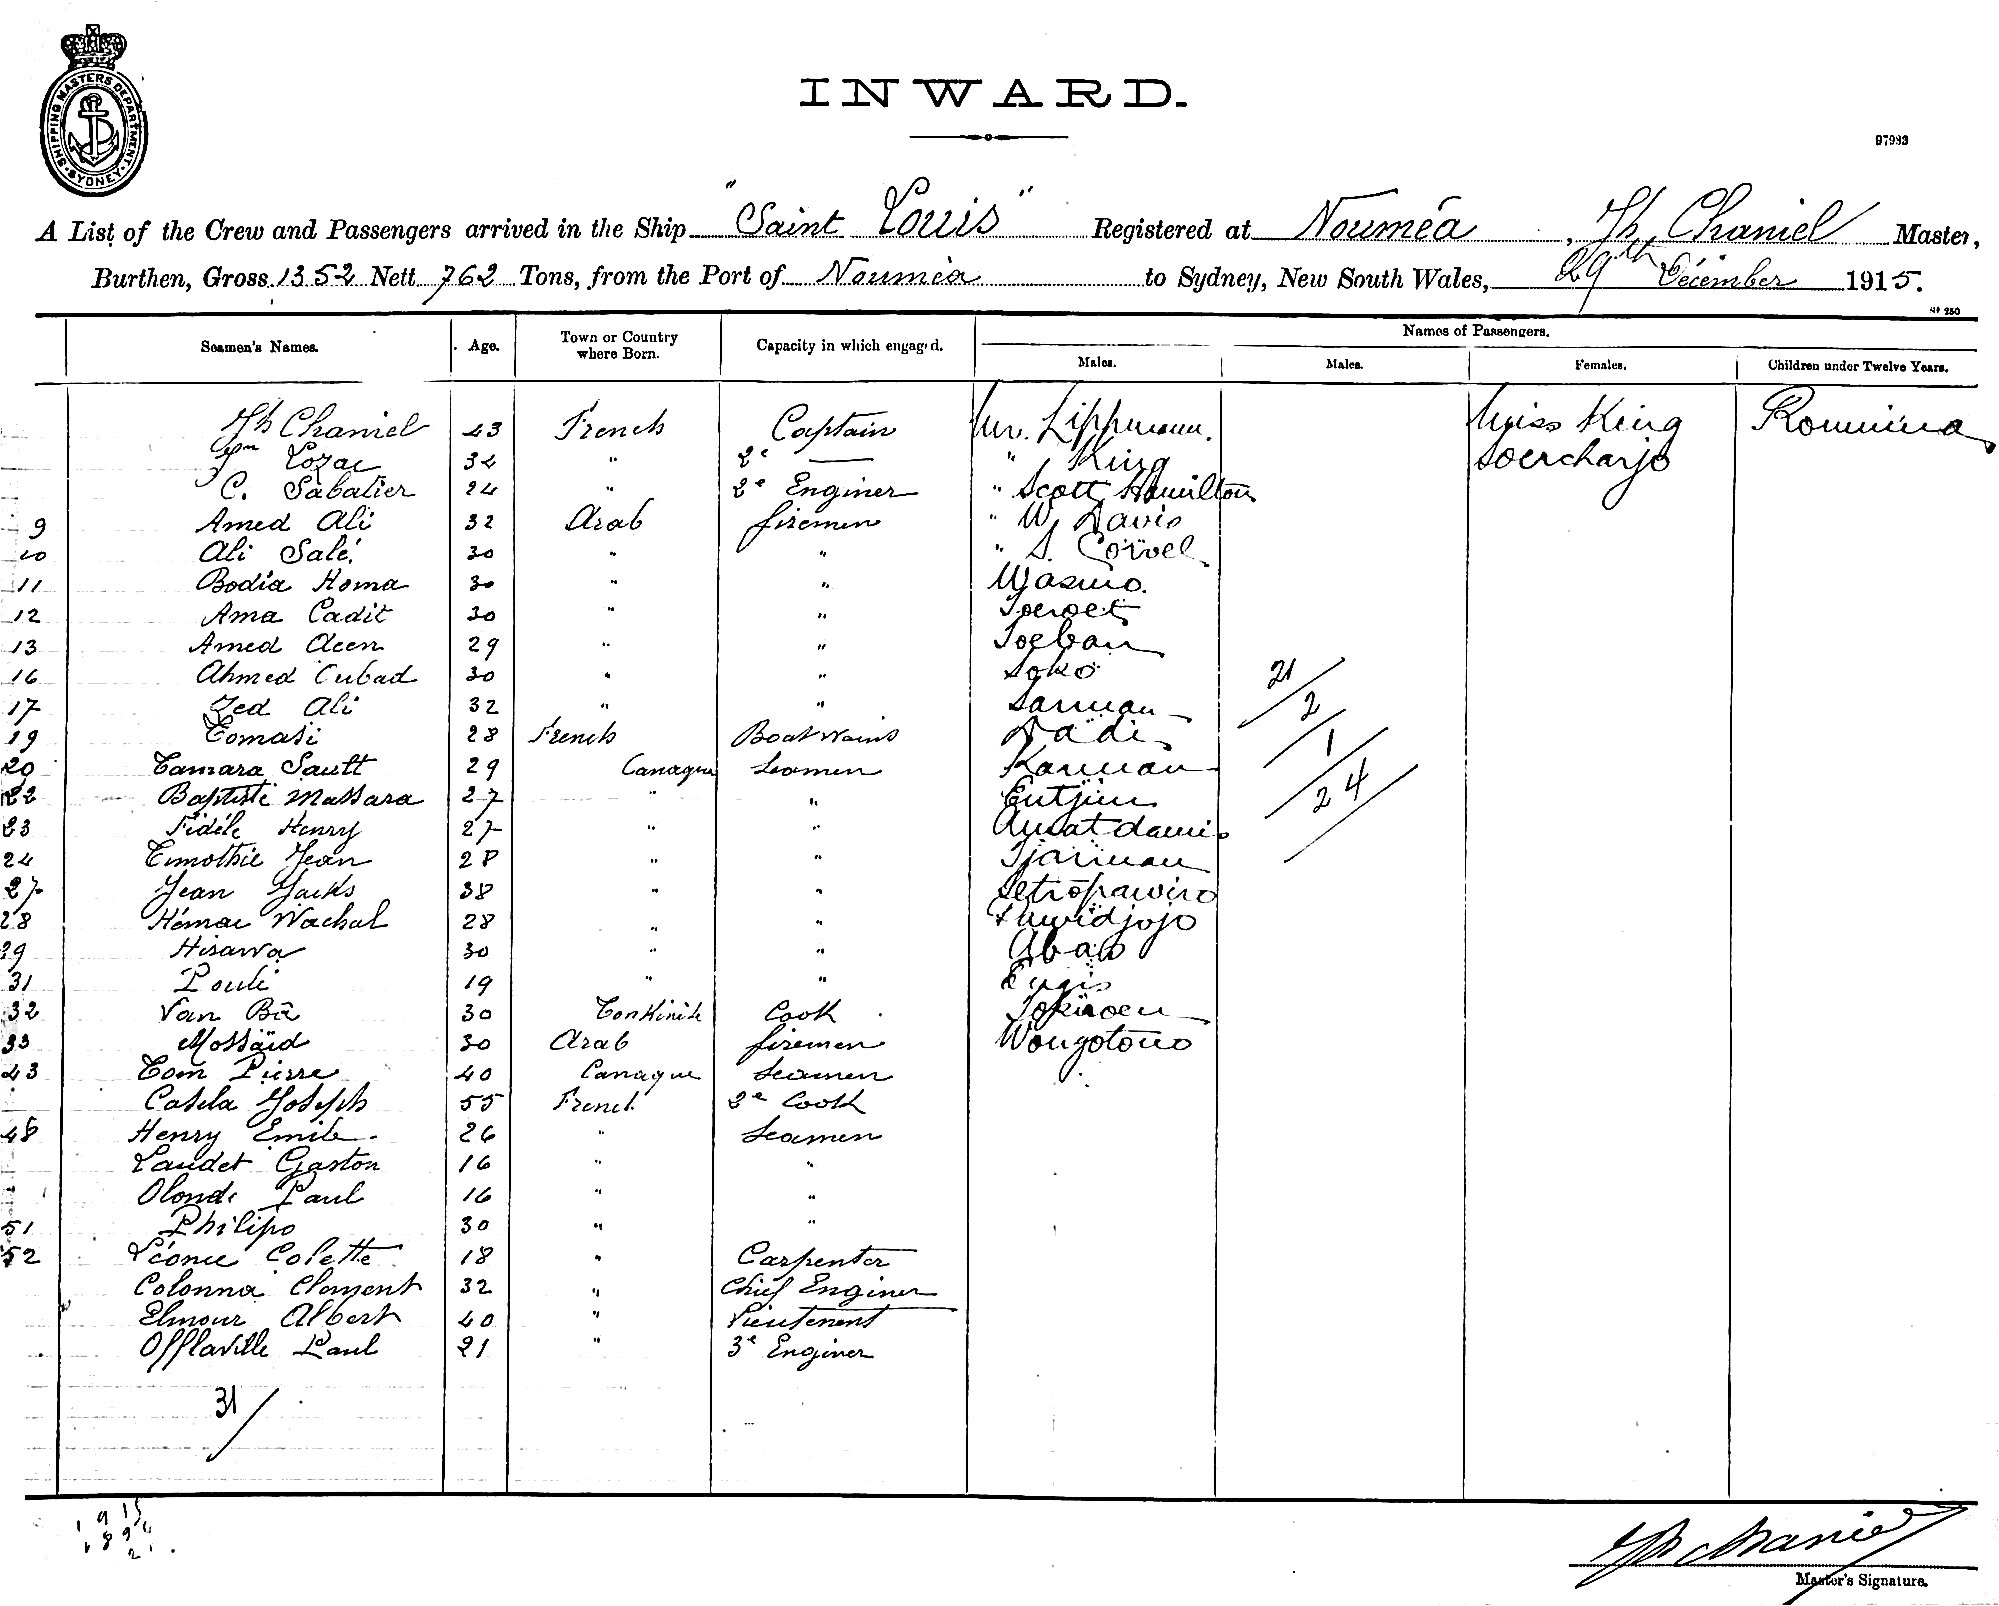 SHIPPING MASTERS DEPARTMENT. SYDNEY
INWARD.
97983
A List of the Crew and Passengers arrived in the Ship "Saint Louis" Registered at Nouméa, Th Chaniel Master,
Burthen, Gross 1352 Nett 762 Tons, from the Port of Nouméa to Sydney, New South Wales, 29th Décember 1915.
Seamen's Names. Age. Town or Country where Born. Capacity in which engaged. Names of Passengers.
Males. Males. Females. Children under Twelve Years.
Th Chaniel 43 French Captain Mr. Lippmann. Miss King Romina
Lozac 34 " 2e — " King Soercharjo
C. Sabatier 24 " 2e Enginer " Scott Hamilton
9 Amed Ali 32 Arab firemen " W. Davis
10 Ali Salé 30 " " " S. Corvel
11 Bodia Homa 30 " " Wasmo.
12 Ama Cadit 30 " "
13 Amed Deen 29 " " Soeban
16 Ahmed Cubad 30 " " Soko
17 Zed Ali 32 " " Sarman
19 Tomasi 28 French Boatswains Dadi
20 Tamara Sautt 29 Canaque Seamen Karman
22 Baptiste Massara 27 " " Entjim
23 Fidéle Henry 27 " "
24 Timothie Jean 28 " " Tjarman
27 Jean Jacks 38 " " Setropawiro
28 Hémac Wachal 28 " "
29 Hisawa 30 " " Abas
31 Pouli 19 " "
32 Van Bā 30 Tonkinite Cook
33 Mossaïd 30 Arab firemen Wongotono
43 Tom Pierre 40 Canaque Seamen
Casela Joseph 55 French 2e Cook
48 Henry Emile. 26 " Seamen
Laudet Gaston 16 " "
Olonde Paul 16 " "
51 Philipo 30 " "
52 Léonce Colette 18 " Carpenter
Colonna Clement 32 " Chief Enginer
Elmour Albert 40 " Lieutenent
Offlaville Paul 21 " 3e Enginer
21/
2/
1/
24/
31/
Th Chaniel
Master's Signature.